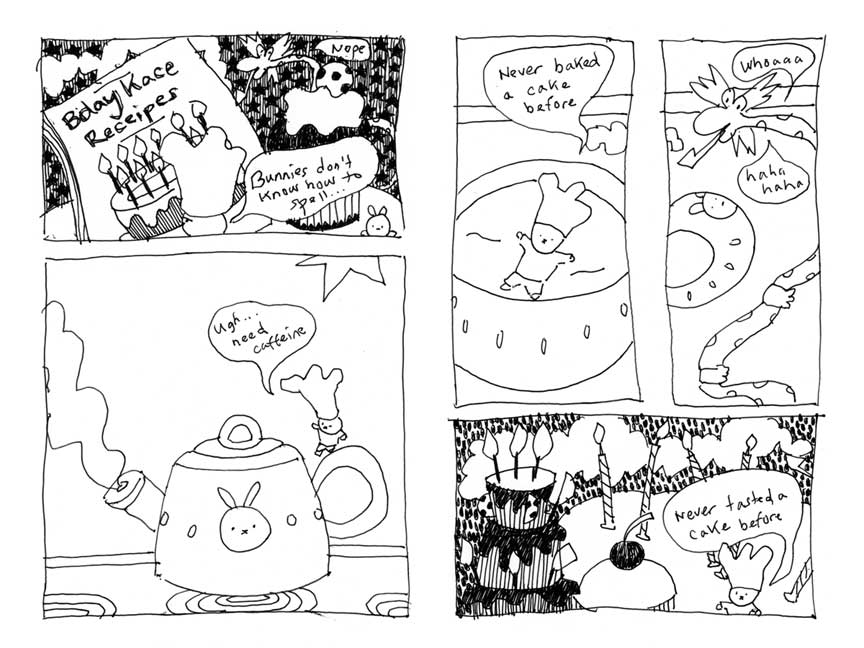 Bday Kace
Receipes
Nope
Bunnies don't
know how to
spell...
Ugh...
need
caffeine
Never baked
a cake
before
Whoaaa
haha
haha
Never tasted a
cake before